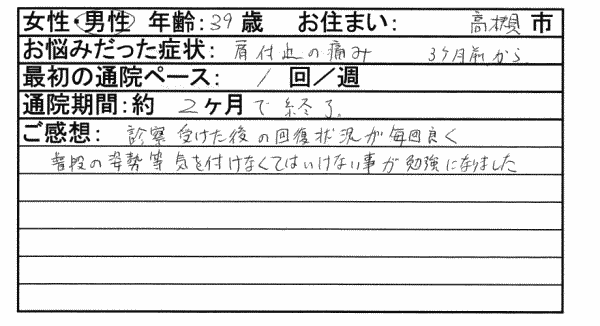 女性・男性 年齢:39歳 お住まい: 高槻市
お悩みだった症状: 肩付近の痛み 3ヶ月前から
最初の通院ペース: 1回／週
通院期間:約 2ヶ月で終了。
ご感想: 診察受けた後の回復状況が毎回良く
普段の姿勢等気を付けなくてはいけない事が勉強になりました